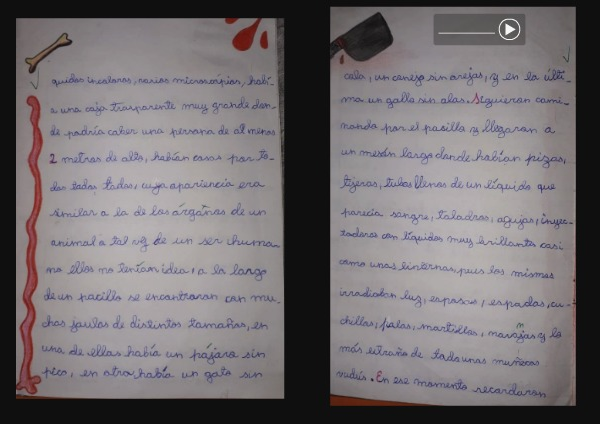 quidos incoloros, varios microscópios, habí-
a una caja trasparente muy grande don-
de podría caber una persona de al menos
2 metros de alto, habían cosas por to-
dos lados, cuya apariencia era
similar a la de los órganos de un
animal o tal vez de un ser huma-
no ellos no tenían idea, a lo largo
de un pacillo se encontraron con mu-
chas jaulas de distintos tamaños, en
una de ellas había un pájaro sin
pico, en otra había un gato sin
cola, un conejo sin orejas, y en la últi-
ma un gallo sin alas. Siguieron cami-
nando por el pacillo y llegaron a
un mesón largo donde habían pizas,
tijeras, tubos llenos de un líquido que
parecía sangre, taladros, agujas, inyec-
tadoras con líquidos muy brillantes casi
como unas linternas, pues los mismos
irradiaban luz, espadas, cu-
chillos, palas, martillos, y lo
más extraño de todo unos muñecos
vudús. En ese momento recordaron